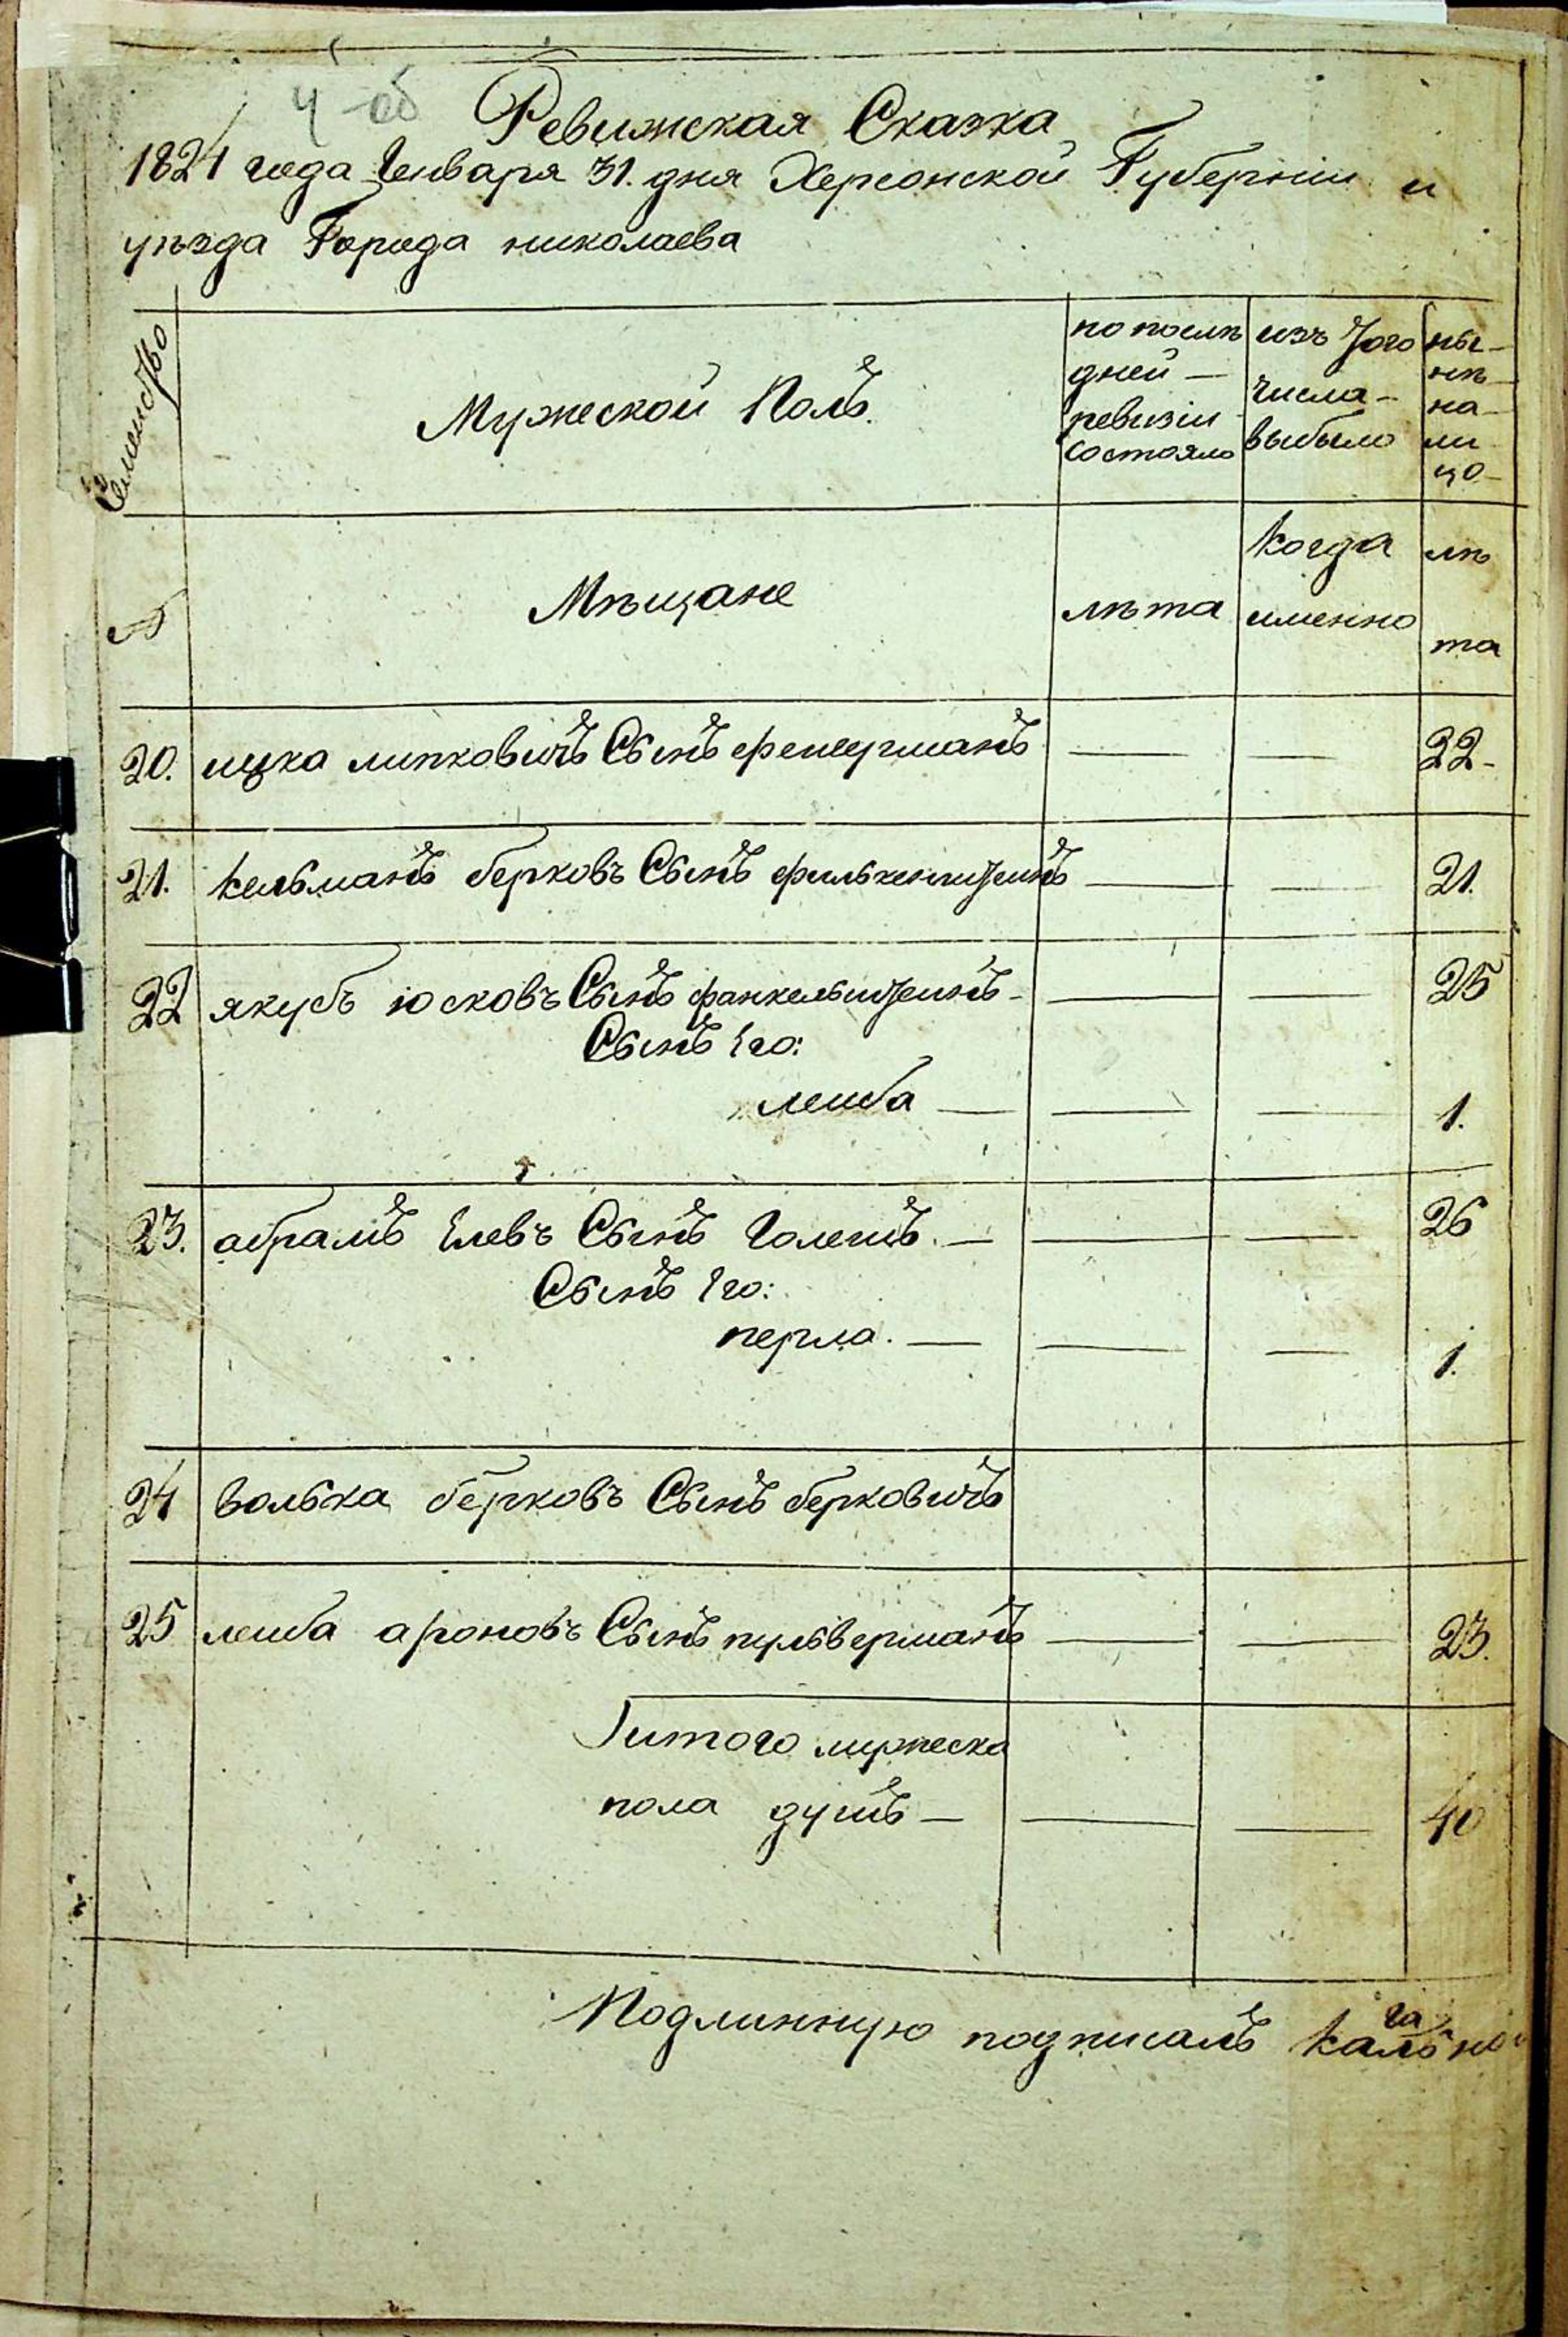 4 об
Ревижская Сказка
1824 года Генваря 31. дня Херсонской Губернiи и
уѣзда Города николаева
Семейство
Мужеской Полъ.
по послѣ
дней —
ревизiи
состояло
изъ того
числа —
выбыло
ны-
нѣ-
на-
ли
цо-
№
Мѣщане
лѣта
когда
именно
лѣ
та
20. ицка липковичъ Сынъ фешерманъ — — 22-
21. кельманъ берковъ Сынъ филькенштеинъ — — 21.
22 якубъ юсковъ Сынъ фанкельштеинъ — — — 25
Сынъ Его:
леиба — — — 1.
23. абрамъ Елевъ Сынъ Голешъ. — — — 26
Сынъ Его:
перла. — — — 1.
24 волька берковъ Сынъ берковичъ
25 леиба ароновъ Сынъ пульверманъ — — 23.
итого мужеска
пола душъ — — — 40
Подлинную подписалъ кагальной